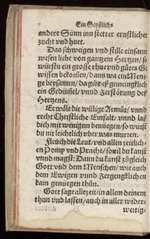 Ein Geystlichs
andere Sünn inn stetter ernstlicher
zucht vnd hüt.
Das schweigen vnd stille einsam
wesen liebe von gantzem Hertzen / so
würstu ein große rhüw vnd gůtes Ge
wissen bekomen / dann wa ein Men
ge beysamen / da gibt es gemeinglich
ein Getümmel / vnnd Zerstörung deß
Hertzens.
Erwöle die willige Armůt / vnnd
rechte Christliche Einfalt / vnnd laß
dich mit wenigem benügen / so würst
du nit leichtlich vber was murren.
Fleüch die Leut / vnd allen zeitlich-
en Pomp vnd Pracht / souil dir kanst
vnnd magst: Dann du kanst zůgleich
Gott vnd dem Menschen / wie auch
dem Ewigen vnnd Zergengklichen
kein genuegen thůn.
Gott sage alle zeit in allem deinem
thůn vnd lassen / auch in aller wider-
wertig-